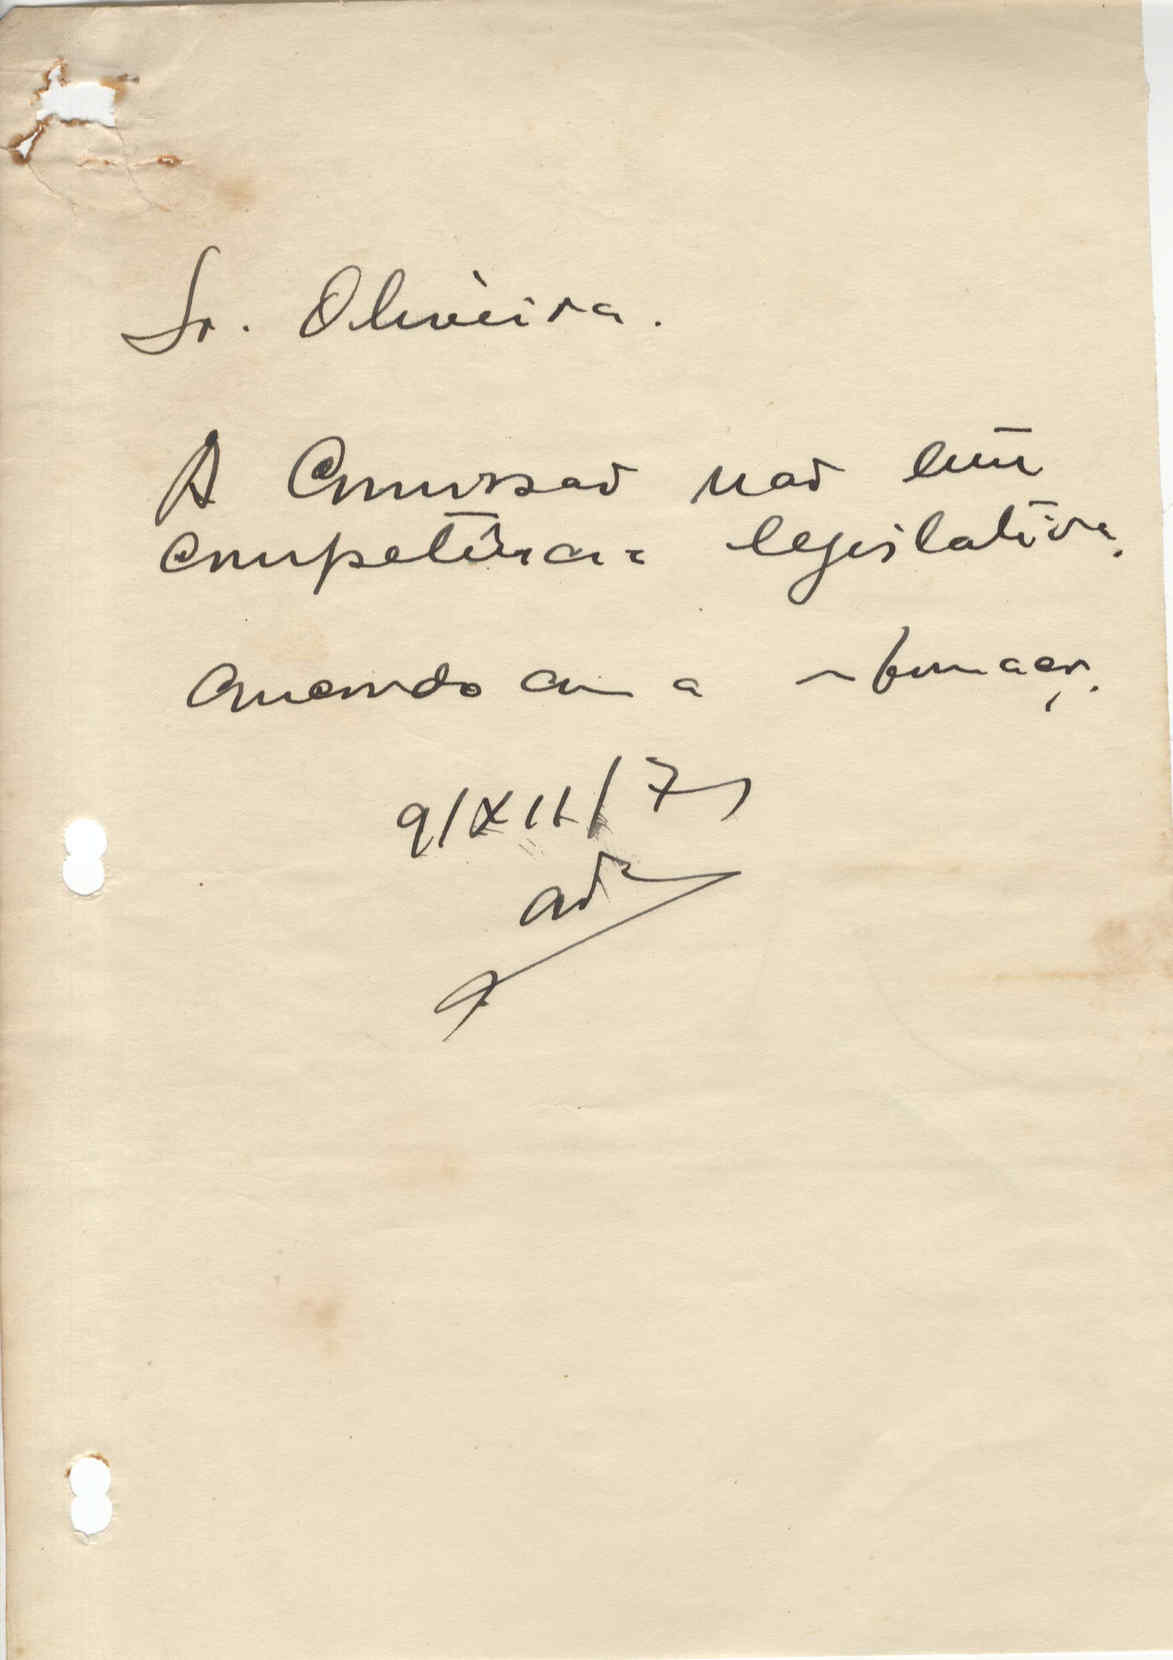 Sr. Oliveira.
A Comissão não tem
competência legislativa.
Concordo com a informação.
9/XII/71